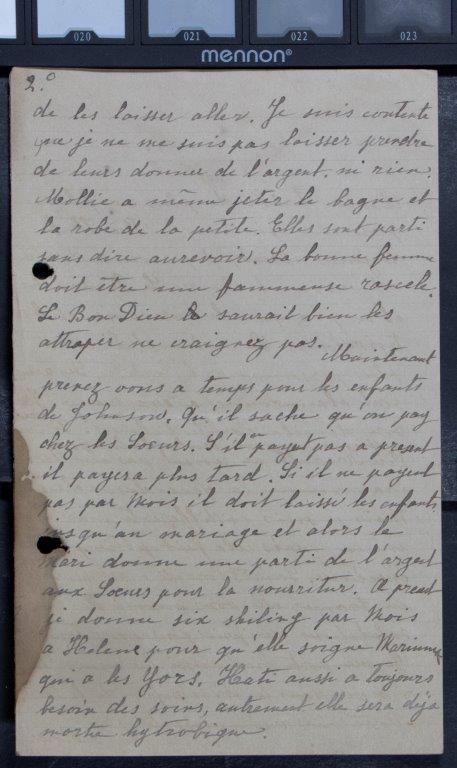 020 021 022 023
mennon®
2.º
de les laisser aller. Je suis contente
que je ne me suis pas laisser prendre
de leurs donner de l'argent, ni rien.
Mollie a même jeter le bagne et
la robe de la petite. Elles sont parti
sans dire aurevoir. La bonne femme
doit etre une fammeuse rascele.
Le Bon Dieu saurait bien les
attraper ne craignez pas.
Maintenant
prenez vous a temps pour les enfants
de Johnson. Qu'il sache qu'on pay
chez les Soeurs. S'il on payent pas a present
il payera plus tard. Si il ne payent
pas par Mois il doit laissé les enfants
jusqu'au mariage et alors le
Mari donne une parti de l'argent
aux Soeurs pour la nourritur. A present
je donne six shiling par Mois
a Helene pour qu'elle soigne
qui a les Yors. Kati aussi a toujours
besoin des soins, autrement elle sera déja
morte hytrobique.